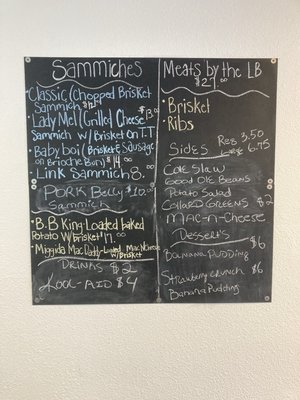 Sammiches
• Classic (Chopped Brisket
Sammich
• Lady Mel (Grilled Cheese 13.00
Sammich w/ Brisket on T.T
• Baby boi (Brisket & Sausage
on Brioche Bun) $14.00
• Link Sammich 8.00
PORK Belly $10.00
Sammich
• B.B King-Loaded baked
Potato w/ Brisket $17.00
• Miggida Mac Daddy-Loaded Mac N Cheese
w/ Brisket
DRINKS $2
KOOL-AID $4
Meats by the LB
$27.00
• Brisket
• Ribs
Sides Reg 3.50
6.75
Cole Slaw
Good Ole Beans
Potato Salad
Collard Greens $2
Mac-n-Cheese
Desserts
$6
Banana Pudding
Strawberry Crunch $6
Banana Pudding